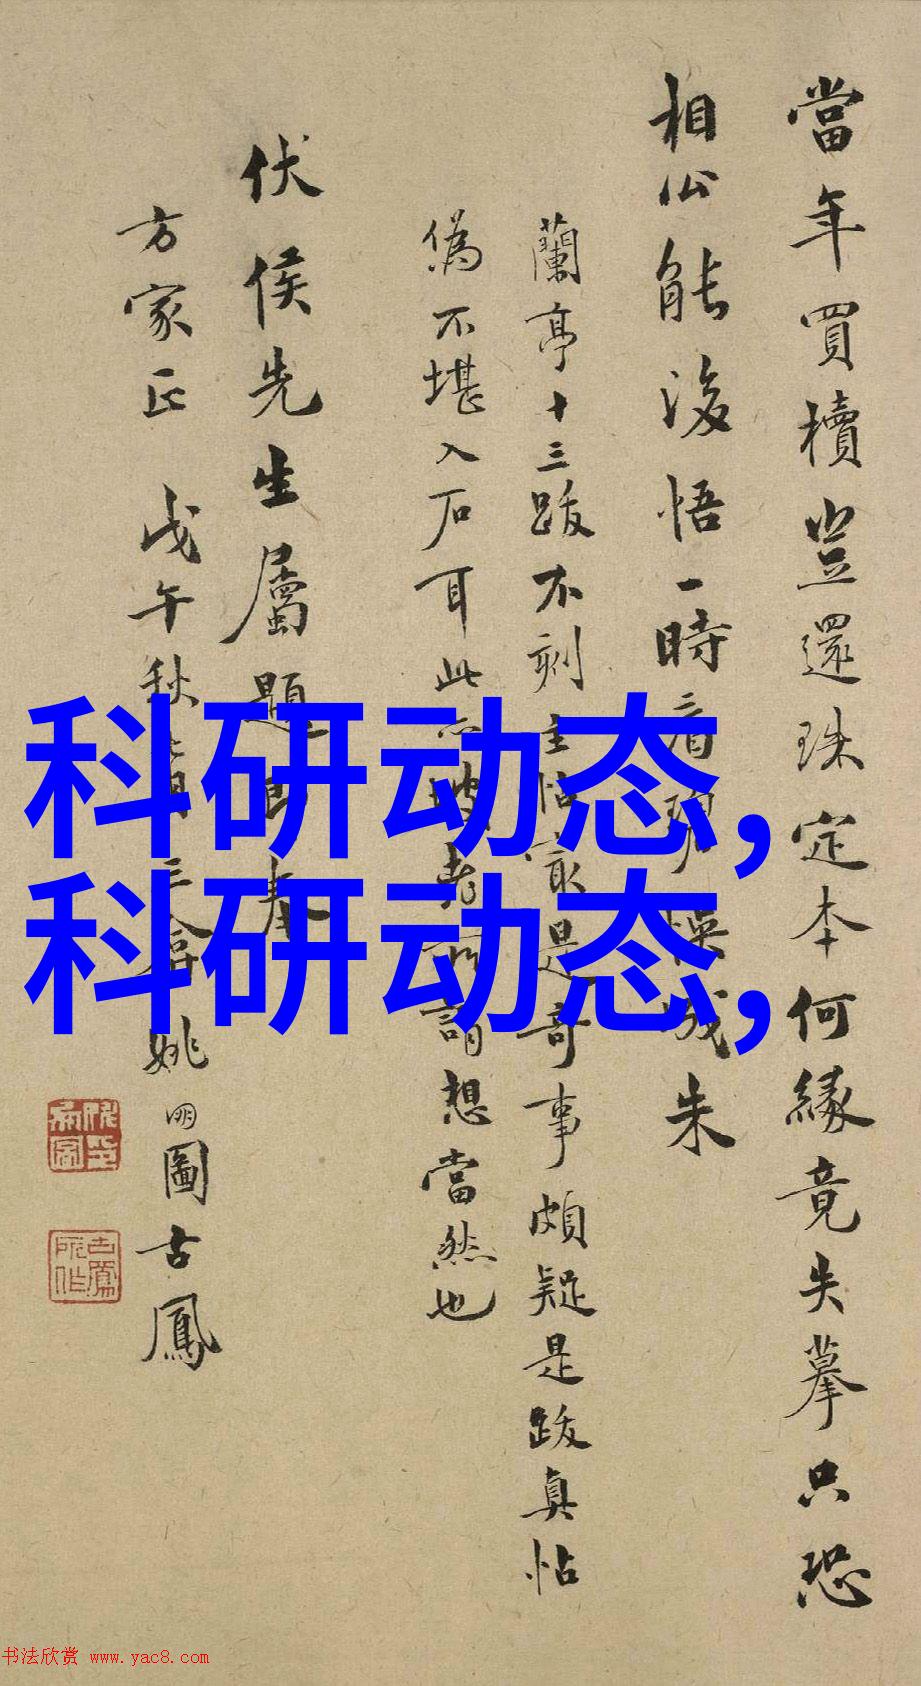 當年買櫝豈還珠定本何緣竟失摹只恐
相公能後悟一時看碧悞成朱
蘭亭十三跋不刻主帖最是奇事頗疑是跋真帖
偽不堪入石耳此亦坡老所謂想當然也
伏侯先生屬題即奉
方家正 戊午秋 姚 圖古鳳
科研动态,
科研动态,
书法欣赏 www.yac8.com